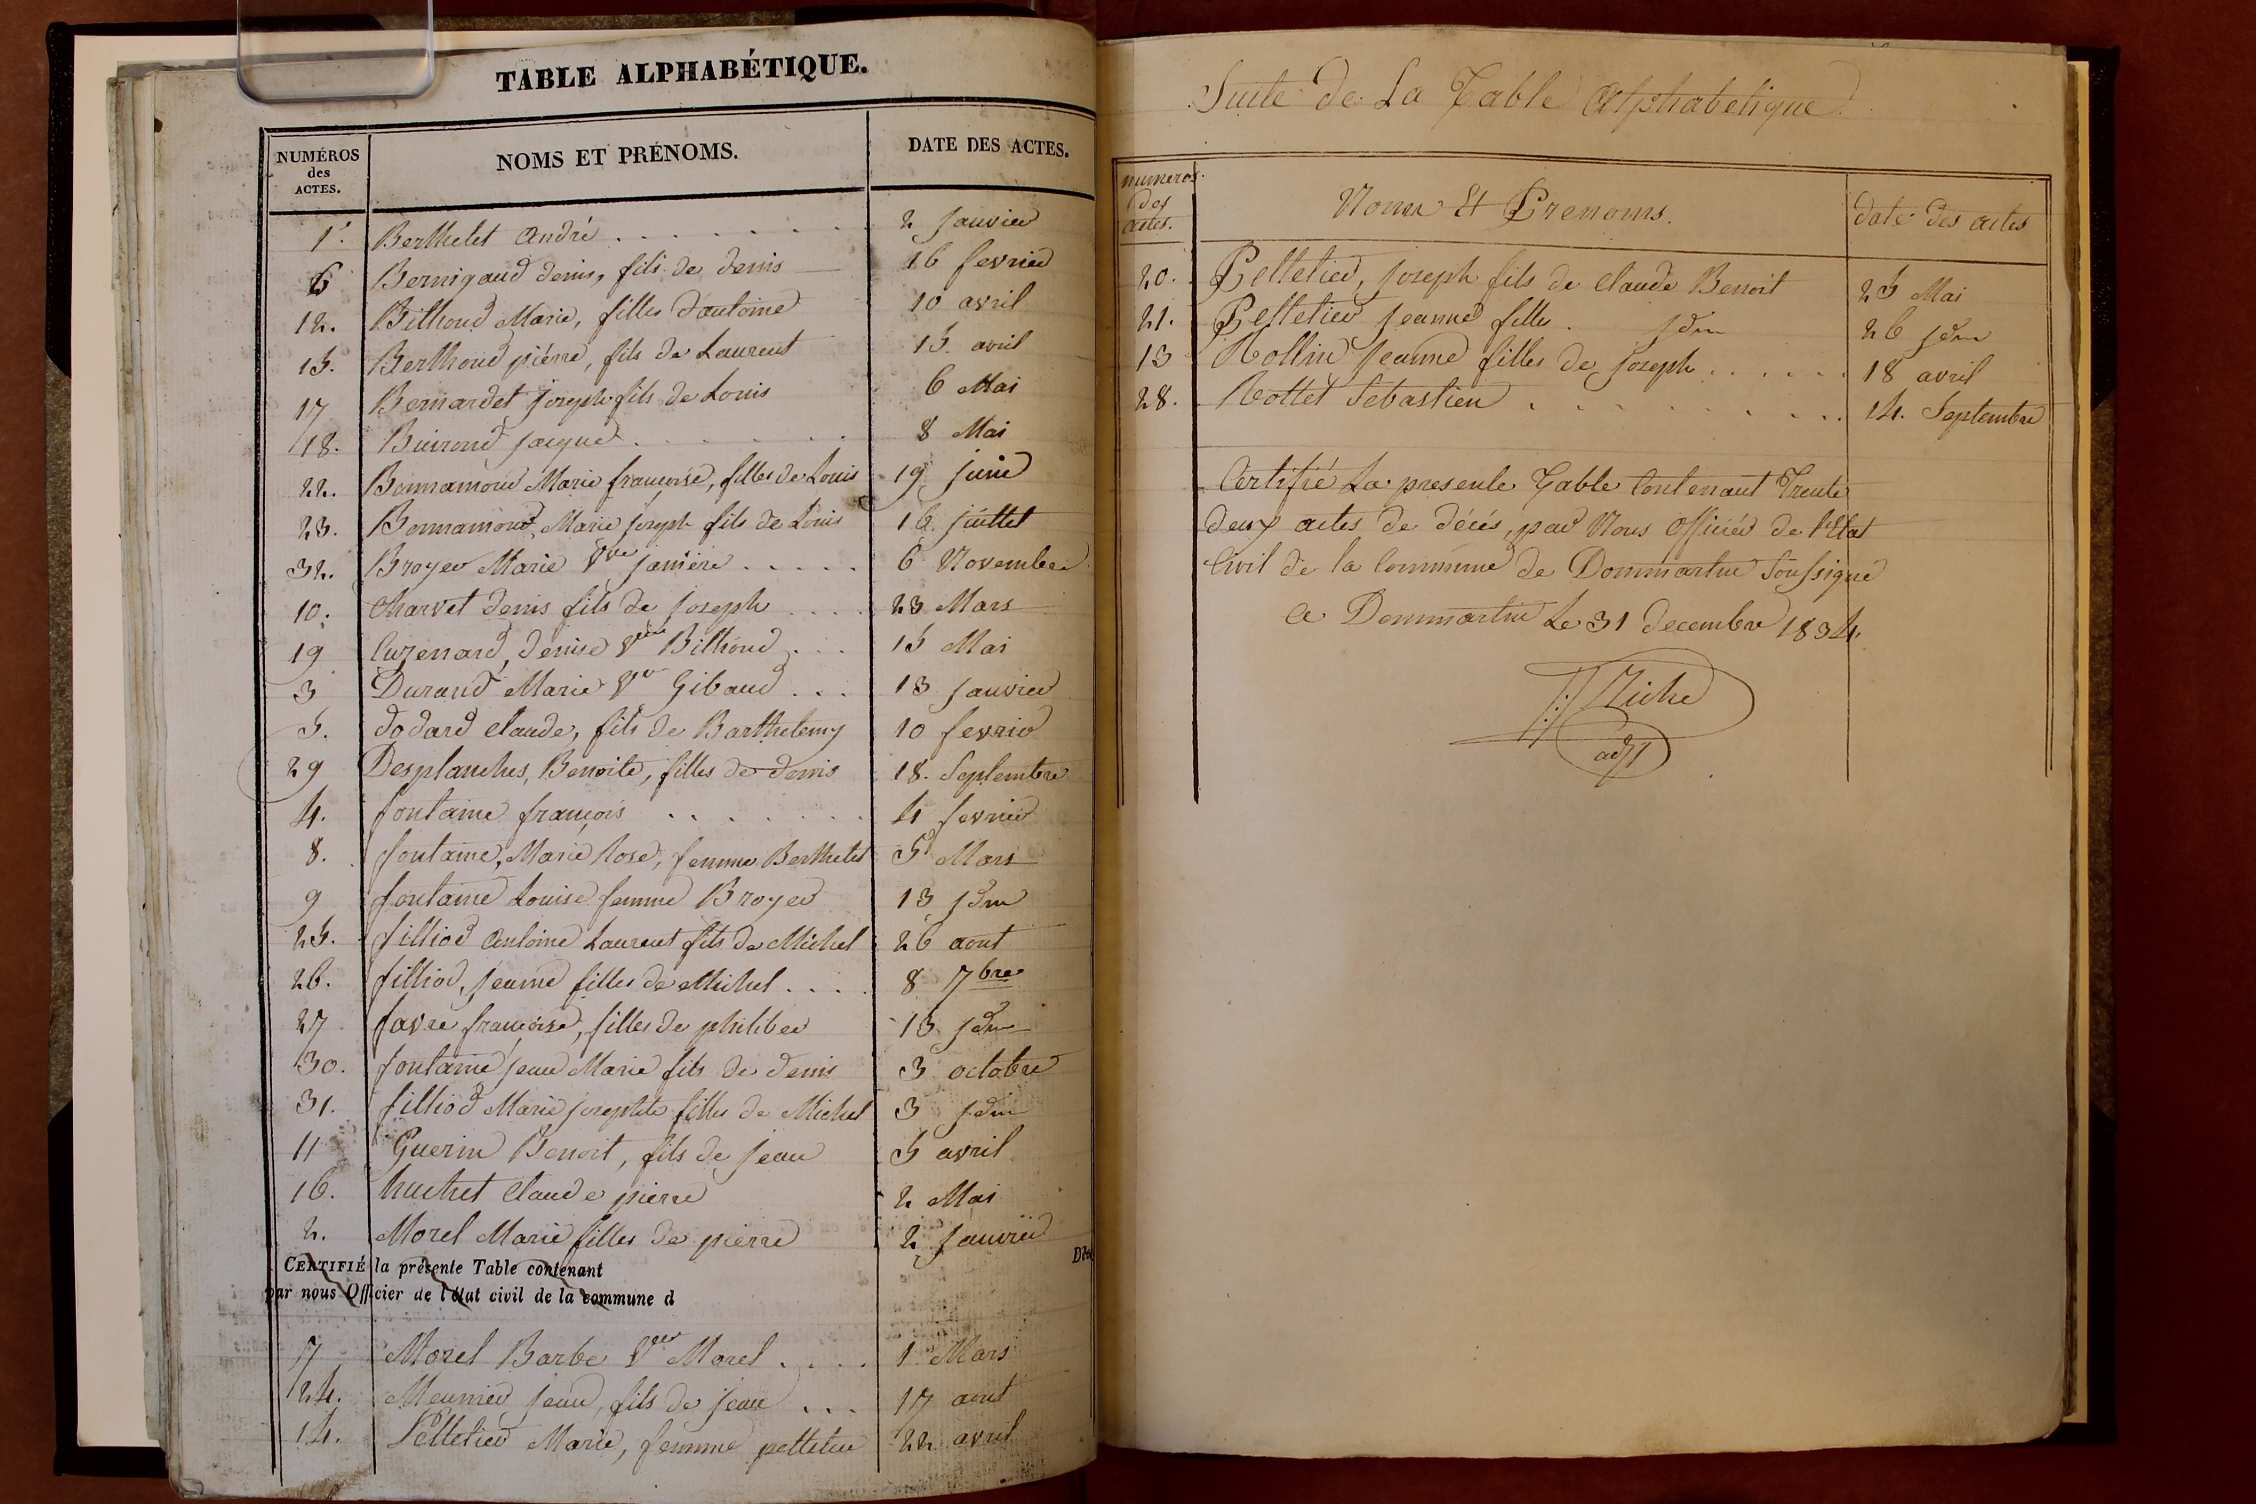 TABLE ALPHABÉTIQUE.
NUMÉROS des ACTES. NOMS ET PRÉNOMS. DATE DES ACTES.
1. Berthelet André . . . . . . . . . 2 janvier
6 Bernigaud denis, fils de denis 16 fevrier
12. Bilhoud Marie, filles d'antoine 10 avril
15. Berthoud piérre, fils de Laurent 15. avril
17 Bernardet joseph fils de Louis 6 Mai
18. jacque . . . . . . . . 8 Mai
22. Bonnamour Marie francoise, filles de Louis 19 juin
23. Bonnamour, Marie joseph fils de Louis 16 juillet
32. Broyer Marie Vve janiére . . . . . 6 Novembre
10. Charvet denis fils de joseph . . . . 23 Mars
19 Cuzenard, denise Vve Bilhoud . . . 15 Mai
3 Durand Marie Vve Gibaud . . . 13 janvier
5. dodard Claude, fils de Barthelemy 10 fevrier
29 Desplanches, Benoite, filles de denis 18. Septembre
4. fontaine françois . . . . . . . 4 fevrier
8. fontaine, Marie Rose, femme Berthelet 5 Mars
9 fontaine Louise femme Broyer 13 jdm
25. filliod antoine Laurent fils de Michel 26 aout
26. filliod, jeanne filles de Michel . . . . 8 7bre
27 favre francoise, filles de philiber 13 jdm
30. fontaine jean Marie fils de denis 3 octobre
31. filliod Marie josephte filles de Michel 3 jdm
11 Guerin Benoit, fils de jean 5 avril
16. huchet Claude pierre 2 Mai
2. Morel Marie filles de pierre 2 janvier
CERTIFIÉ la présente Table contenant
par nous Officier de l'état civil de la commune d
7 Morel Barbe Vve Morel . . . . 1 Mars
24. Meunier jean, fils de jean . . . 17 aout
14. Pelletier Marie, femme pelletier 22 avril
Suite de La Table Alphabetique
numeros des actes. Noms Et Prenoms. date des actes
20. Pelletier, joseph fils de Claude Benoit 25 Mai
21. Pelletier jeanne filles . jdm 26 jdm
13 Rollin jeanne filles de joseph . . . . . . 18 avril
28. Rottet Sebastien . . . . . . . . . . 14. Septembre
Certifié La presente Table Contenant Trente
deux actes de décés, par Nous officiér de l'Etat
Civil de la Commune de Dommartin Soussigné
a Dommartin Le 31 decembre 1834.